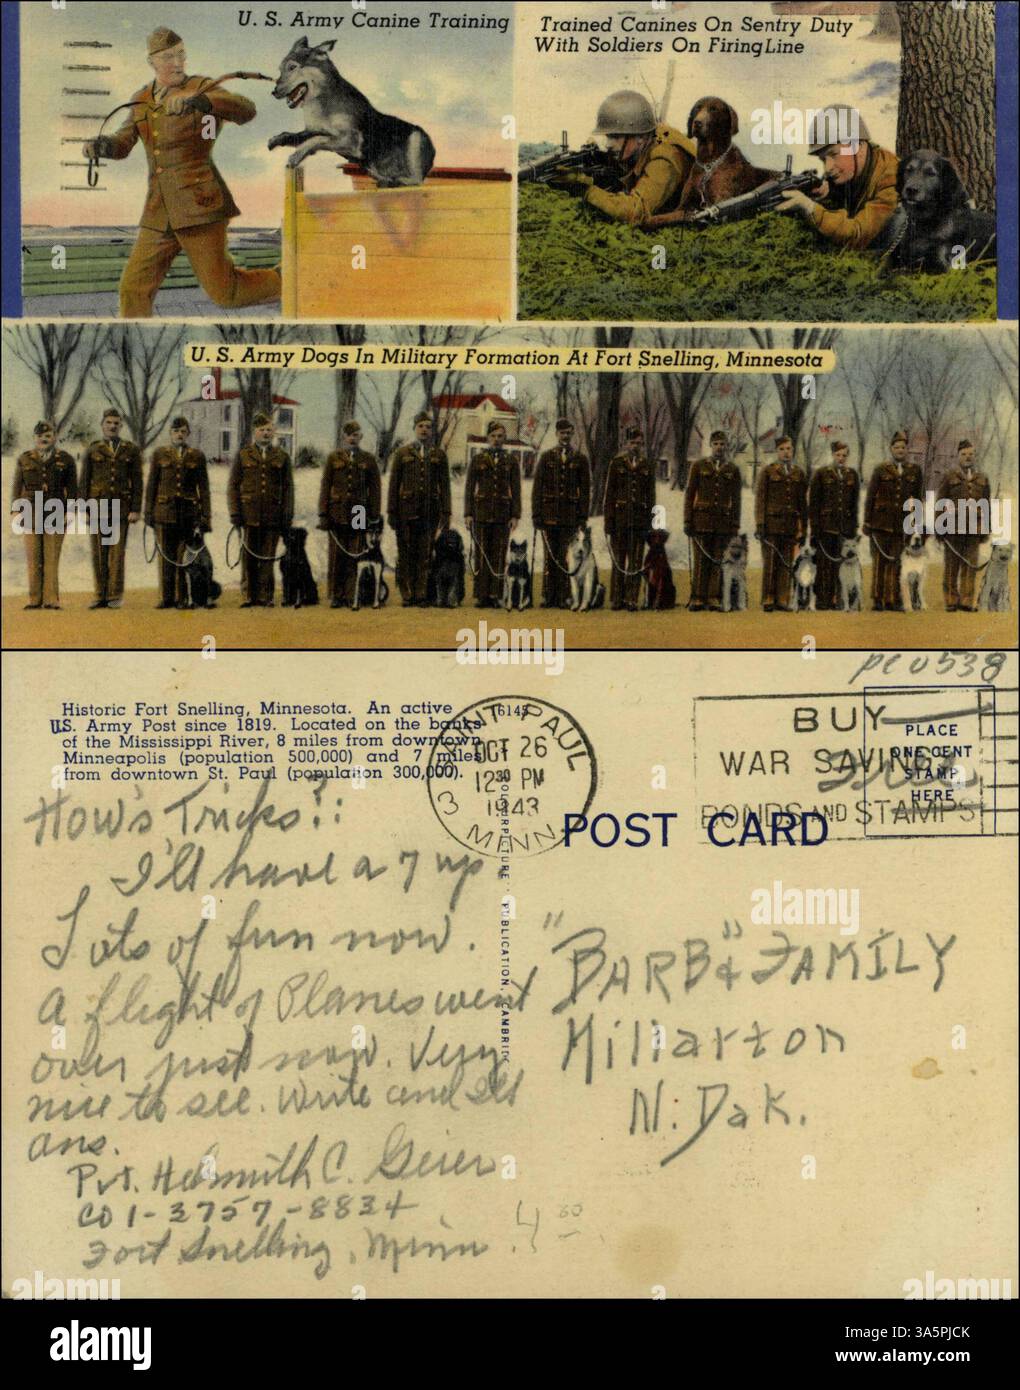 U. S. Army Canine Training
Trained Canines On Sentry Duty
With Soldiers On Firing Line
U. S. Army Dogs In Military Formation At Fort Snelling, Minnesota
pc0538
Historic Fort Snelling, Minnesota. An active
U.S. Army Post since 1819. Located on the banks
of the Mississippi River, 8 miles from downtown
Minneapolis (population 500,000) and 7 miles
from downtown St. Paul (population 300,000).
6145
SAINT PAUL
OCT 26
12 30 PM
1943
3 MINN.
BUY
WAR SAVINGS
BONDS AND STAMPS
PLACE
ONE CENT
STAMP
HERE
Free
POST CARD
COLOURPICTURE PUBLICATION, CAMBRIDGE
How's Tricks?:
I'll have a 7 up
Lots of fun now.
A flight of Planes went
over just now. Very
nice to see. Write and I'll
ans.
Pvt. Helmuth C. Geier
CO 1-3757-8834
Fort Snelling, Minn.
"BARB" & FAMILY
Millarton
N. Dak.
4 80
alamy
Image ID: 3A5PJCK
www.alamy.com